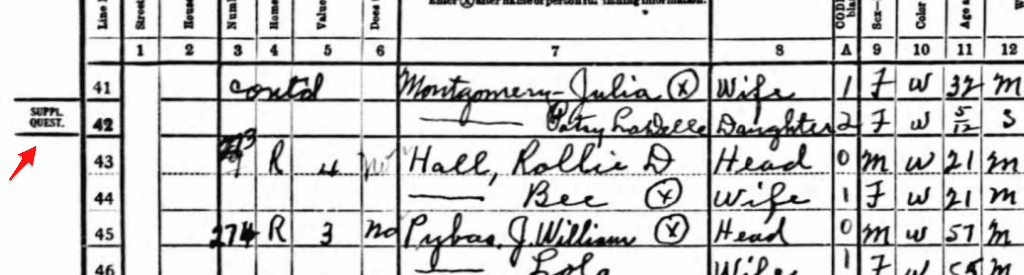 Line Street House Numb Home Value Does Enter (X) after name of person furnishing information. CODE Sex— Color Age
1 2 3 4 5 6 7 8 A 9 10 11 12
41 contd Montgomery - Julia (X) Wife 1 F W 32 M
SUPPL. QUEST.
42 —— Patsy LaDelle Daughter 2 F W 5/12 S
43 273 R 4 Hall, Rollie D Head 0 M W 21 M
44 —— Bee (X) Wife 1 F W 21 M
45 274 R 3 No Pybas, J. William (X) Head 0 M W 57 M
46 —— Lola Wife 1 F W